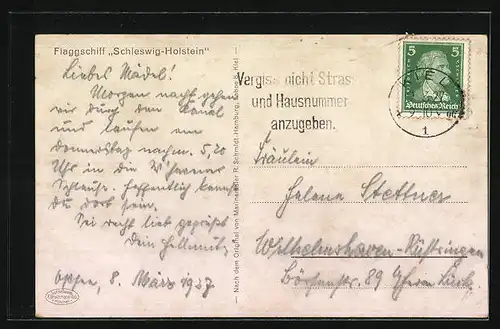 Flaggschiff „Schleswig-Holstein"
Liebes Mädel!
Morgen nacht gehen
wir durch den Kanal
und laufen am
Donnerstag nachm. 5,20
Uhr in die W'havener
Schleuse. Hoffentlich kannst
du dort sein.
Sei recht lieb gegrüßt
Dein Hellmut.
8. März 1927
Nach dem Original von Marinemaler R. Schmidt-Hamburg, Kiel
Vergiss nicht Strass
und Hausnummer
anzugeben.
KIEL
1
5 5
Deutsches Reich
Fräulein
Helene Stettner
Wilhelmshaven-Rüstringen
Börsenstr. 89